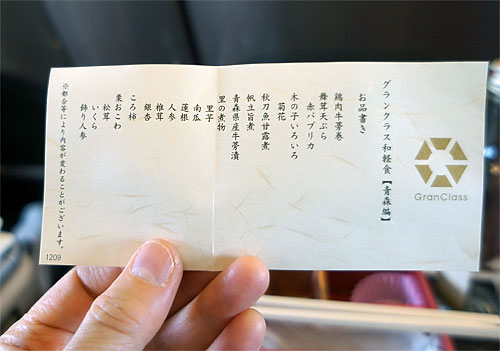 グランクラス和軽食【青森編】
お品書き
鶏肉牛蒡巻
舞茸天ぷら
赤パプリカ
木の子いろいろ
菊花
秋刀魚甘露煮
帆立旨煮
青森県産牛蒡漬
里の煮物
里芋
南瓜
蓮根
人参
椎茸
銀杏
ころ柿
栗おこわ
松茸
いくら
飾り人参
※都合等により内容が変わることがございます。
1209
GranClass